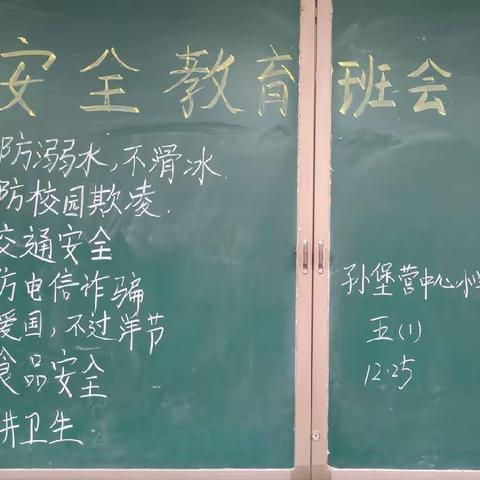 安全教育班会
防溺水,不滑冰
防校园欺凌.
交通安全
防电信诈骗
爱国,不过洋节
食品安全
讲卫生.
孙堡营中心小学
五(1)
12.25